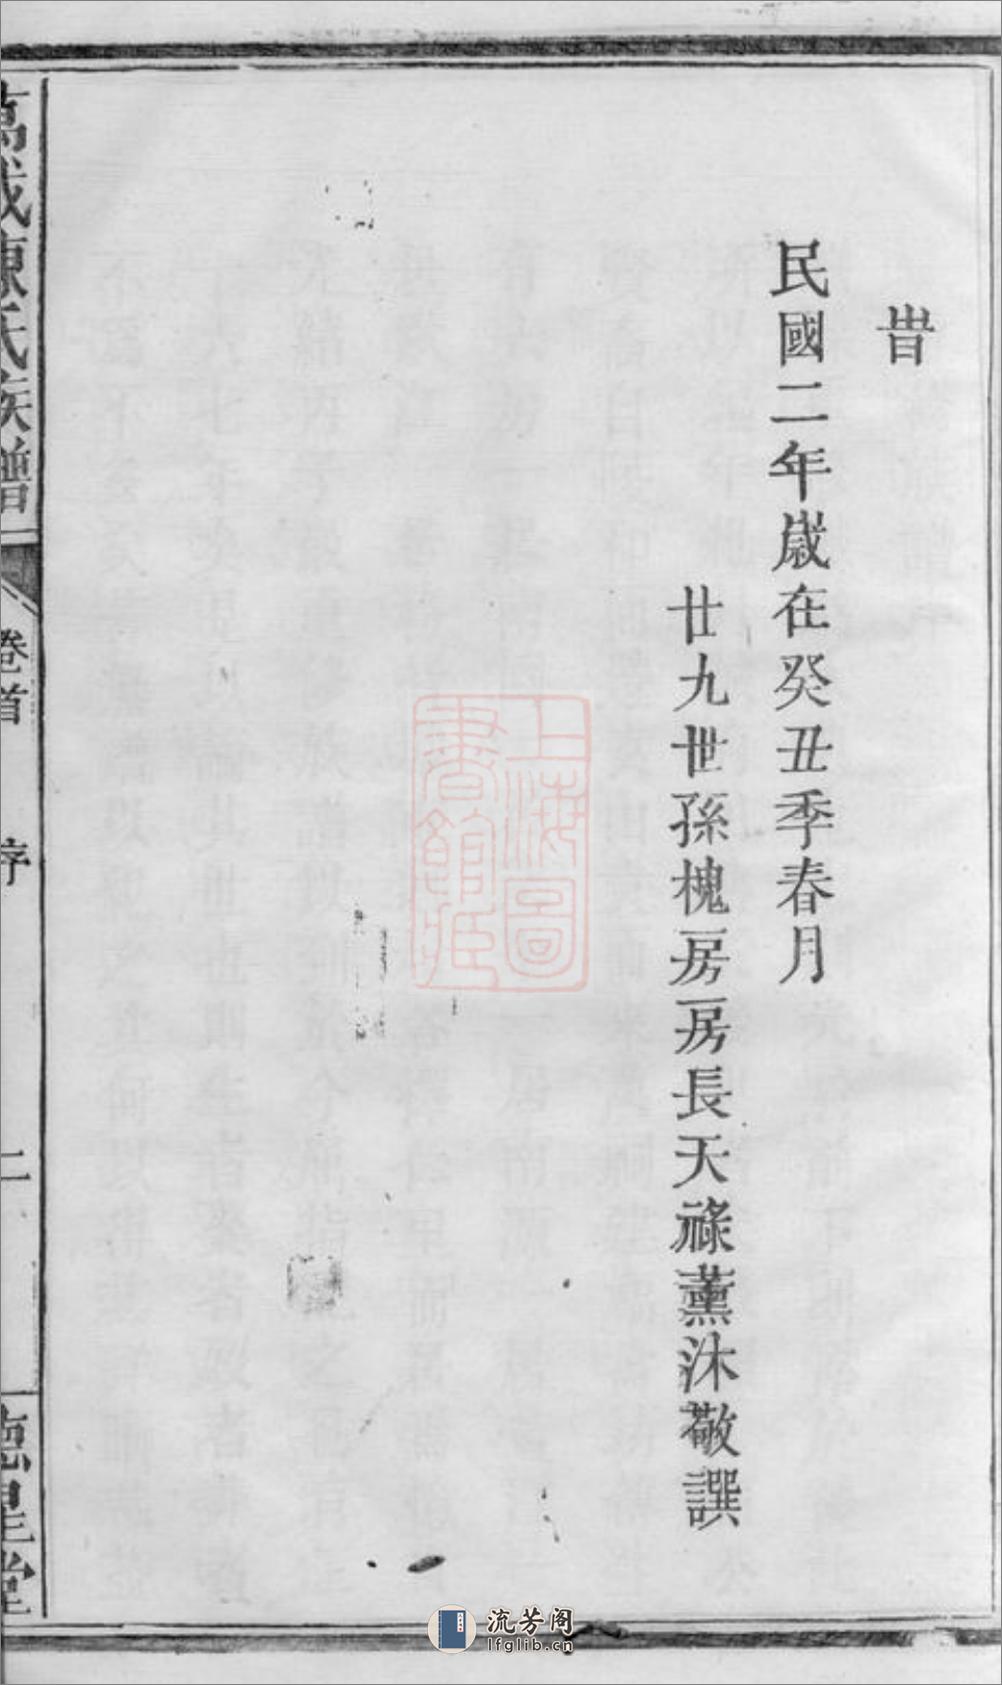 旹
民國二年歲在癸丑季春月
廿九世孫槐房房長天祿薰沐敬譔
萬載陳氏族譜
卷首
序
二
德星堂
上海圖
書館藏
流芳阁
lfglib.cn